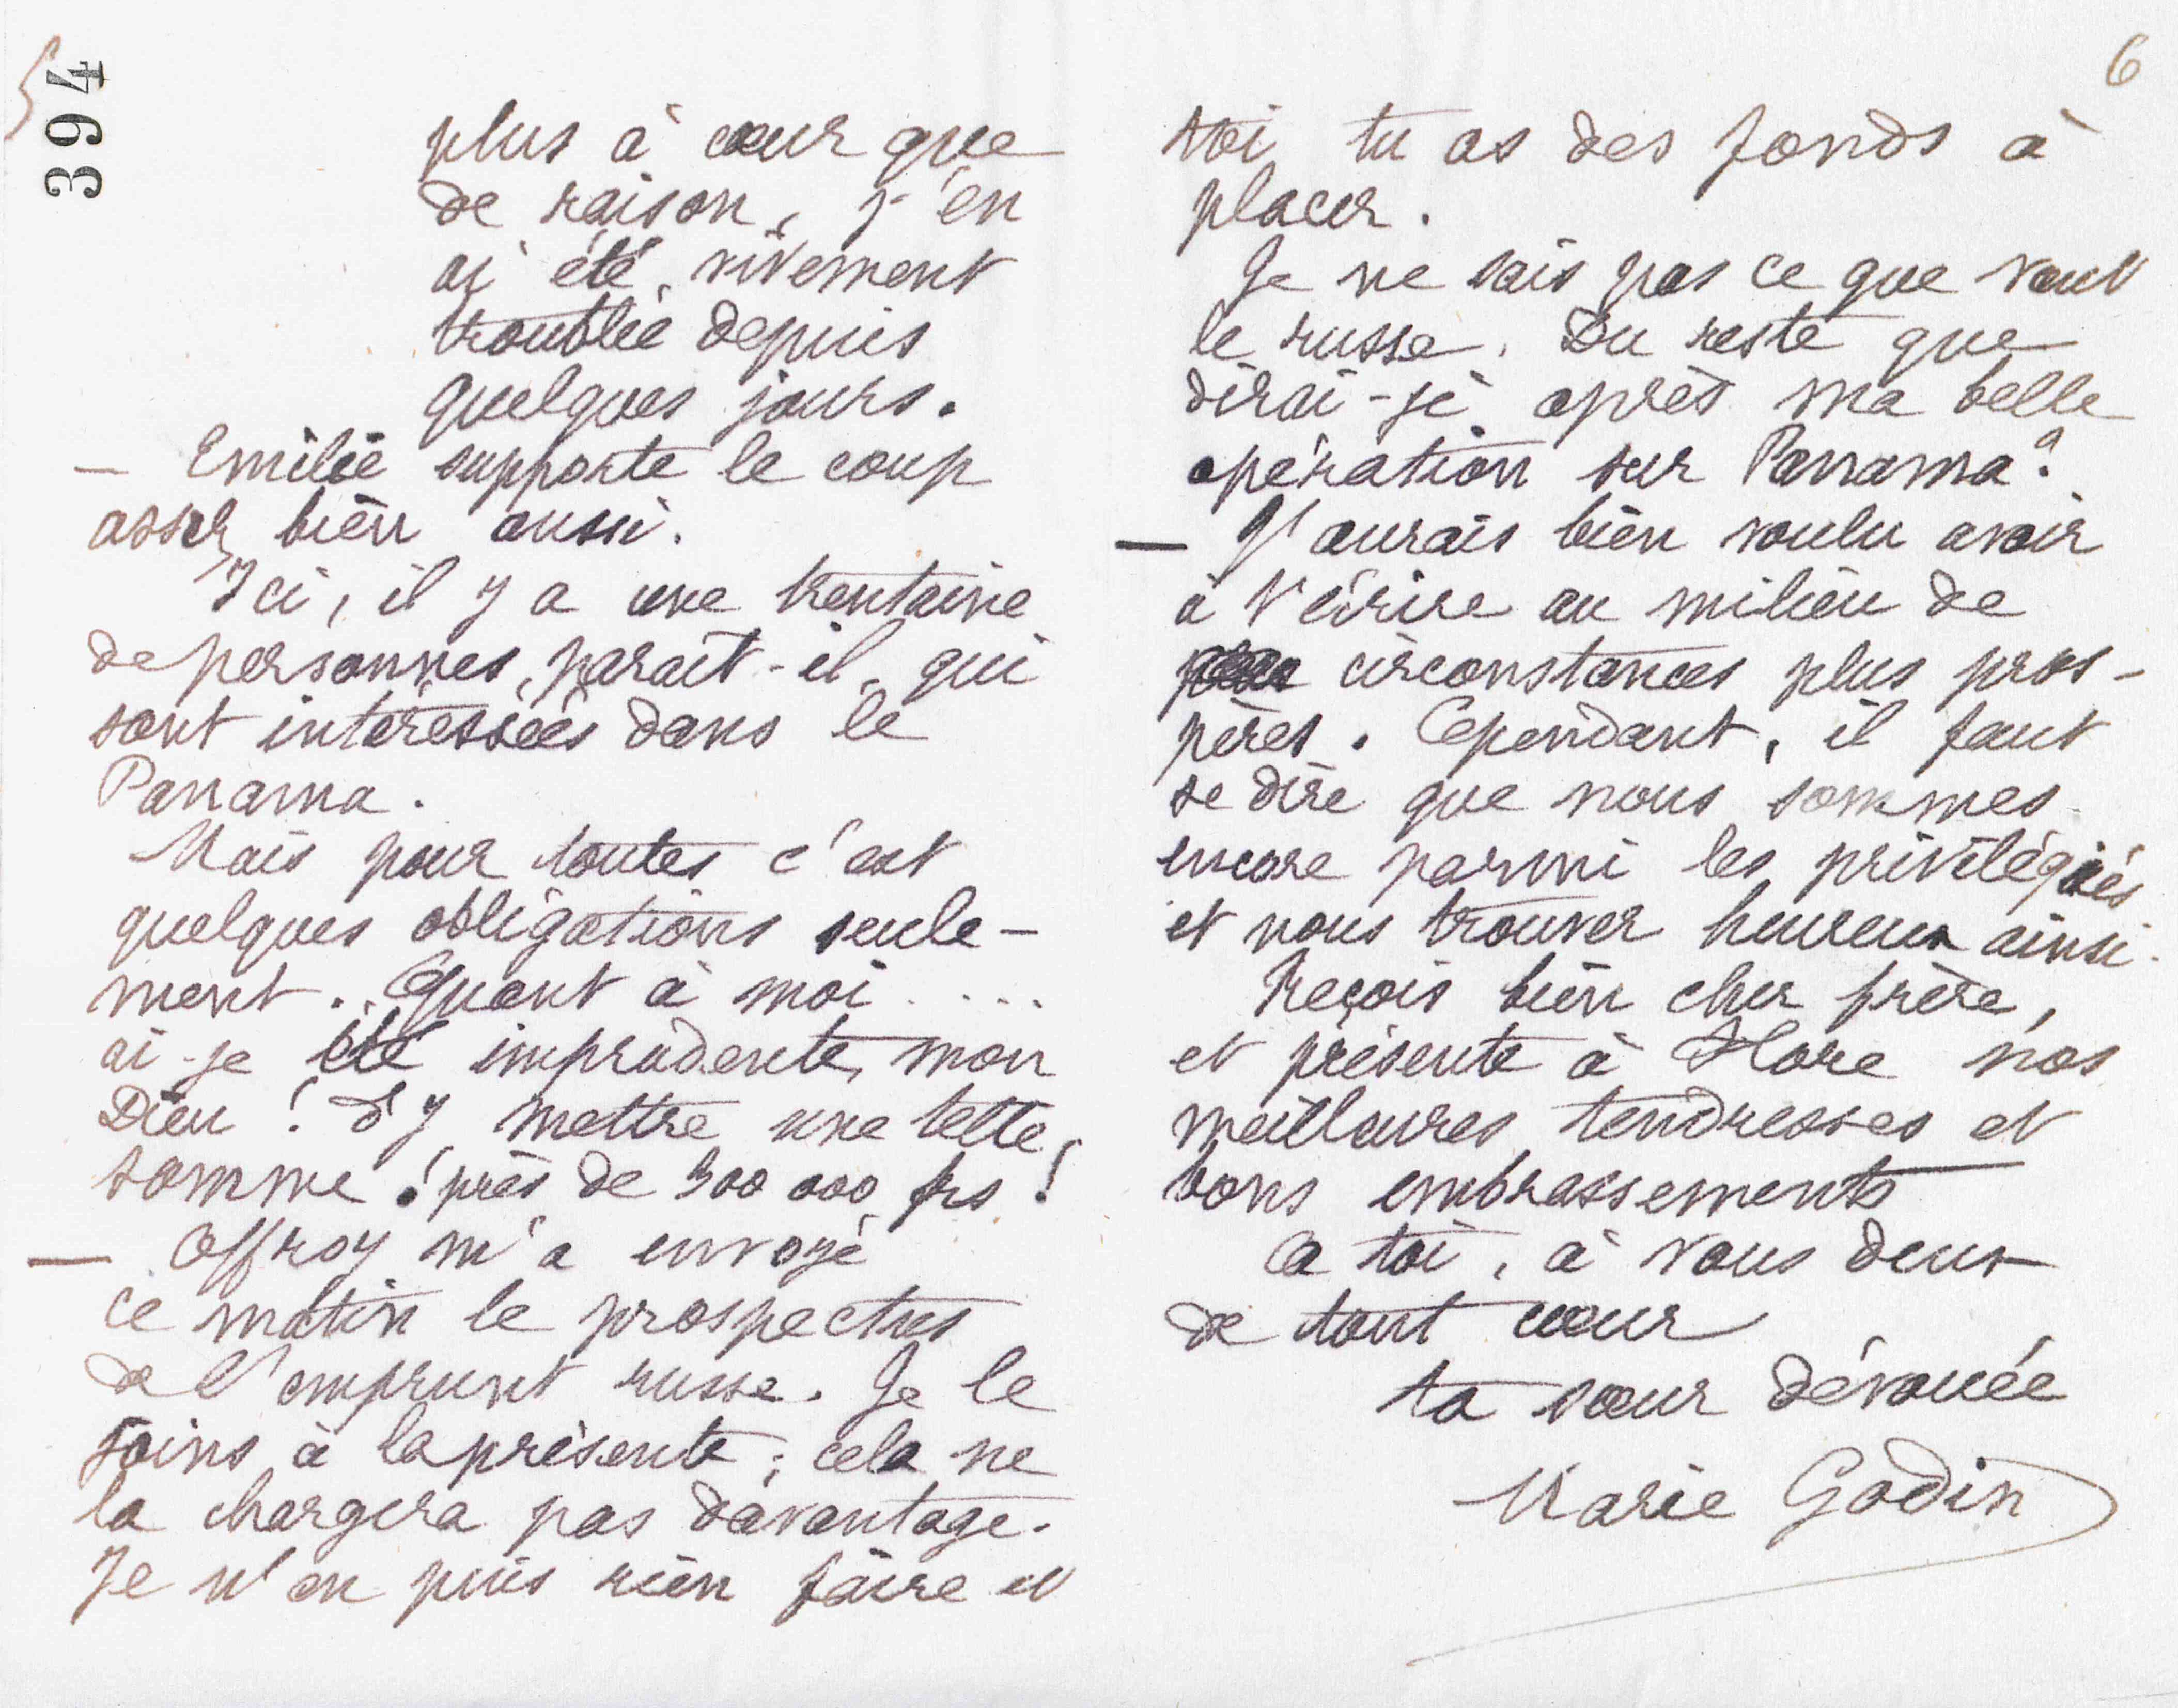 394
5
plus à cœur que
de raison, j'en
ai été vivement
troublée depuis
quelques jours.
— Emilie supporte le coup
assez bien aussi.
Ici, il y a une trentaine
de personnes, paraît-il, qui
sont intéressées dans le
Panama.
Mais pour toutes c'est
quelques obligations seule-
ment. Quant à moi ....
ai-je été imprudente, mon
Dieu ! d'y mettre une telle
somme ! près de 300 000 frs !
— Offroy m'a envoyé
ce matin le prospectus
de l'emprunt russe. Je le
joins à la présente ; cela ne
la chargera pas davantage.
Je n'en puis rien faire et
6
toi tu as des fonds à
placer.
Je ne sais pas ce que vaut
le russe. Du reste que
dirai-je après ma belle
opération sur Panama ?
— J'aurais bien voulu avoir
à t'écrire au milieu de
circonstances plus pros-
pères. Cependant, il faut
se dire que nous sommes
encore parmi les privilégiés
et nous trouver heureux ainsi.
Reçois bien cher frère,
et présente à Flore nos
meilleures tendresses et
bons embrassements
A toi, à vous deux
de tout cœur
ta sœur dévouée
Marie Godin